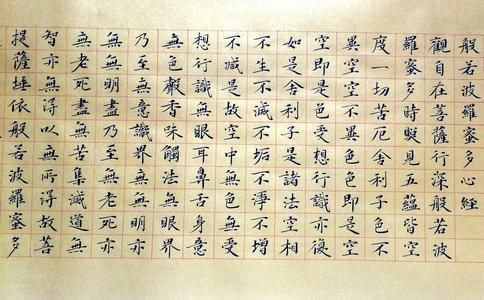 般若波羅蜜多心經
觀自在菩薩行深般若波
羅蜜多時照見五蘊皆空
度一切苦厄舍利子色不
異空空不異色色即是空
空即是色受想行識亦復
如是舍利子是諸法空相
不生不滅不垢不淨不增
不減是故空中無色無受
想行識無眼耳鼻舌身意
無色聲香味觸法無眼界
乃至無意識界無無明亦
無無明盡乃至無老死亦
無老死盡無苦集滅道無
智亦無得以無所得故菩
提薩埵依般若波羅蜜多